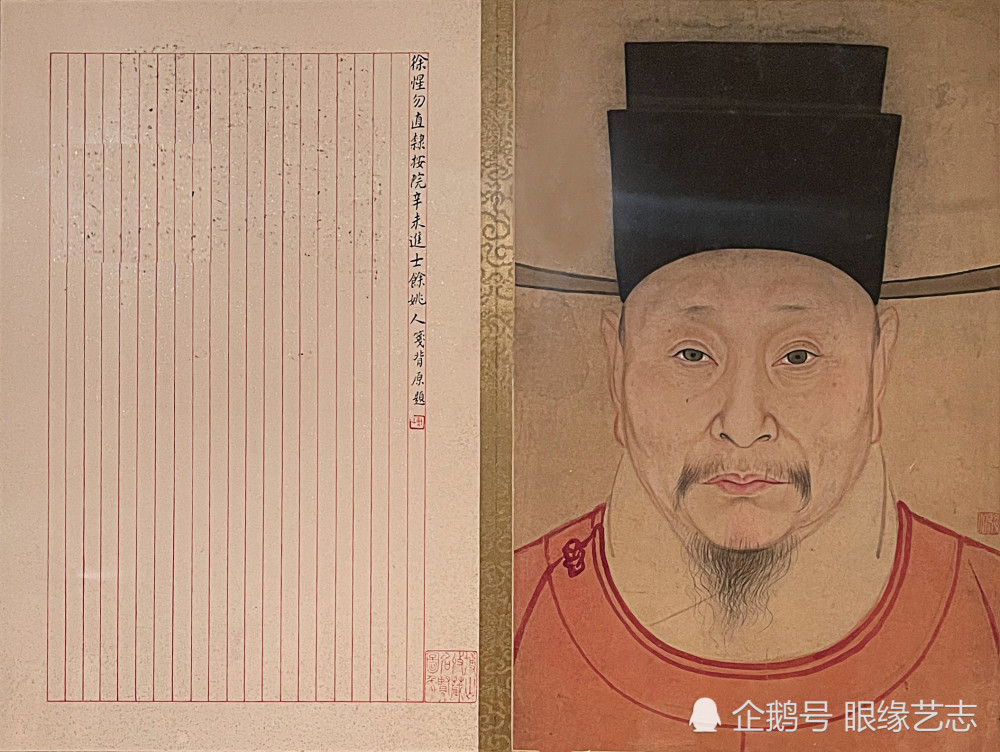 徐惺勿直隸按院辛未進士餘姚人箋背原題
企鹅号 眼缘艺志